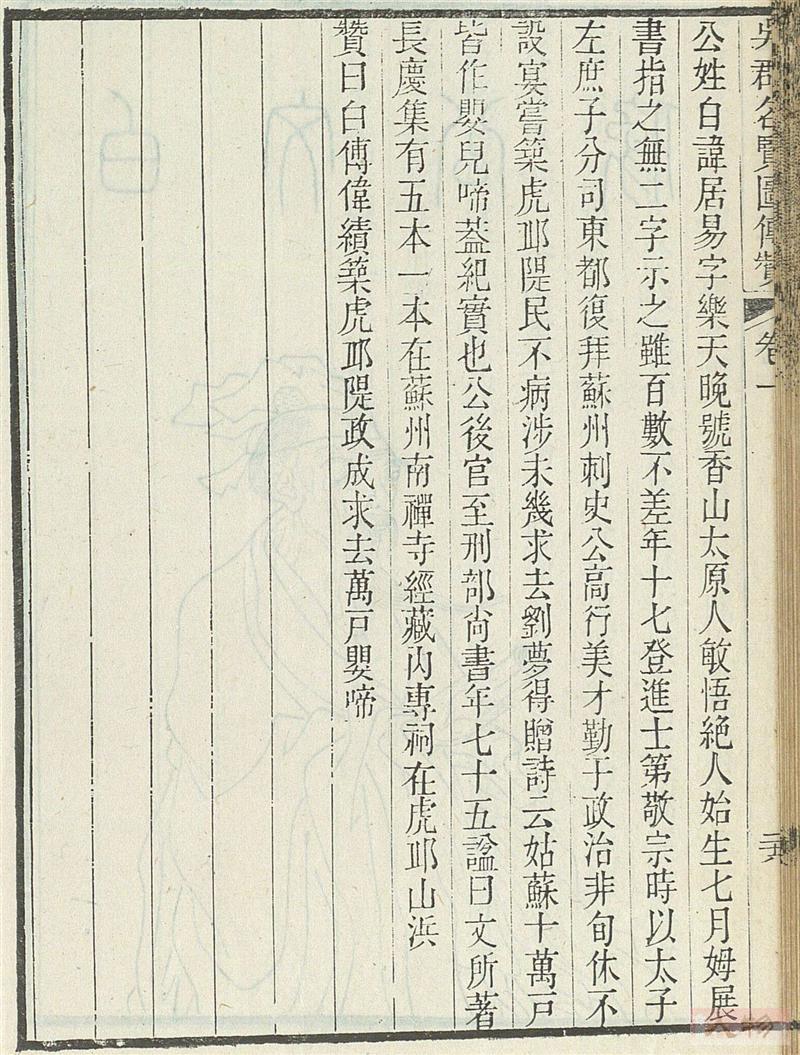 吳郡名賢圖傳贊 卷一 二六
公姓白諱居易字樂天晚號香山太原人敏悟絕人始生七月姆展
書指之無二字示之雖百數不差年十七登進士第敬宗時以太子
左庶子分司東都復拜蘇州刺史公高行美才勤于政治非旬休不
設宴嘗築虎邱隄民不病涉未幾求去劉夢得贈詩云姑蘇十萬戶
皆作嬰兒啼葢紀實也公後官至刑部尙書年七十五諡曰文所著
長慶集有五本一本在蘇州南禪寺經藏內專祠在虎邱山浜
贊曰白傅偉績築虎邱隄政成求去萬戸嬰啼